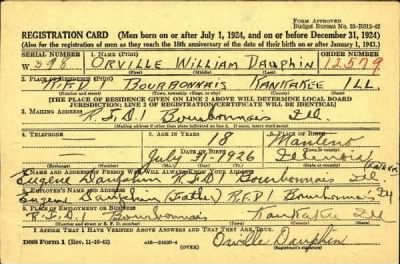 FORM APPROVED
Budget Bureau No. 33-R012-42
REGISTRATION CARD—(Men born on or after July 1, 1924, and on or before December 31, 1924)
(Also for the registration of men as they reach the 18th anniversary of the date of their birth on or after January 1, 1943.)
SERIAL NUMBER 1. NAME (Print) ORDER NUMBER
W 398 ORVILLE WILLIAM DAUPHIN 12579
(First) (Middle) (Last)
2. PLACE OF RESIDENCE (Print)
R.F.D 1 BOURBONNAIS KANKAKEE ILL
[THE PLACE OF RESIDENCE GIVEN ON LINE 2 ABOVE WILL DETERMINE LOCAL BOARD
JURISDICTION; LINE 2 OF REGISTRATION CERTIFICATE WILL BE IDENTICAL]
3. MAILING ADDRESS
R.F.D 1 Bourbonnais Ill.
[Mailing address if other than place indicated on line 2. If same insert word same]
4. TELEPHONE 5. AGE IN YEARS 6. PLACE OF BIRTH
18 Manteno
DATE OF BIRTH
July 1926 Illinois
7. NAME AND ADDRESS OF PERSON WHO WILL ALWAYS KNOW YOUR ADDRESS
Eugene Dauphin R.F.D 1 Bourbonnais Ill
8. EMPLOYER'S NAME AND ADDRESS
Eugene Dauphin (Father) R.F.D 1 Bourbonnais Ill
9. PLACE OF EMPLOYMENT OR BUSINESS
R.F.D. 1 Bourbonnais Kankakee Ill
I AFFIRM THAT I HAVE VERIFIED ABOVE ANSWERS AND THAT THEY ARE TRUE.
DSS Form 1 (Rev. 11-16-42) (OVER) Orville Dauphin